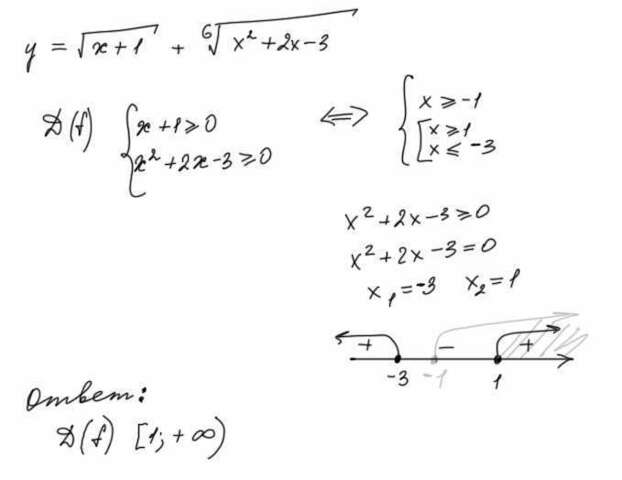 y = √(x+1) + ⁶√(x²+2x-3)
D(f) { x+1≥0 ⟺ { x≥-1
x²+2x-3≥0 [ x≥1
x≤-3
x²+2x-3≥0
x²+2x-3=0
x₁=-3 x₂=1
+ - +
-3 -1 1
Ответ:
D(f) [1;+∞)